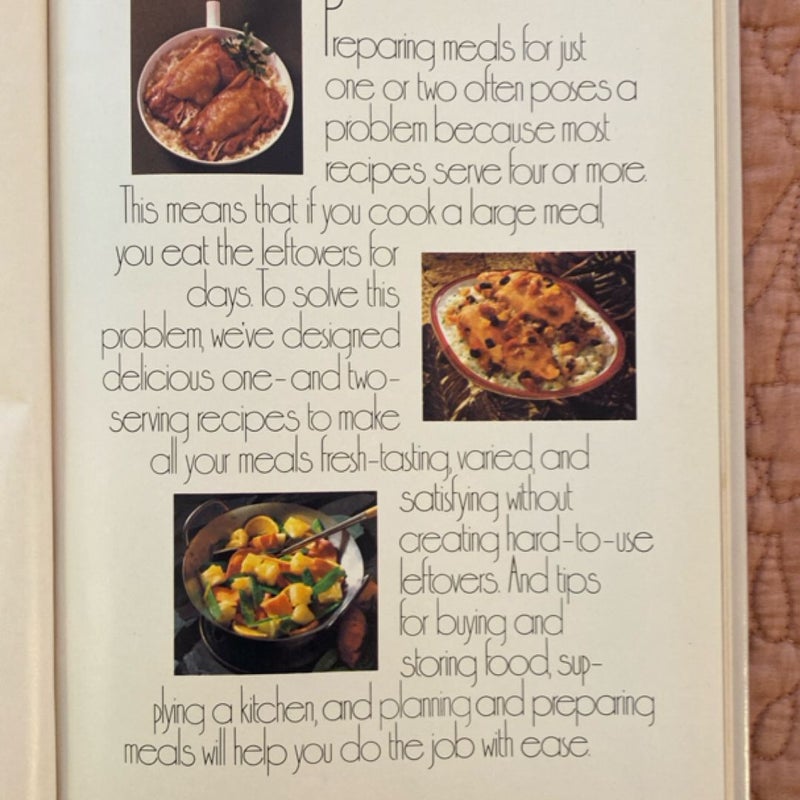 Preparing meals for just
one or two often poses a
problem because most
recipes serve four or more.
This means that if you cook a large meal,
you eat the leftovers for
days. To solve this
problem, we've designed
delicious one-and two-
serving recipes to make
all your meals fresh-tasting, varied, and
satisfying without
creating hard-to-use
leftovers. And tips
for buying and
storing food, sup-
plying a kitchen, and planning and preparing
meals will help you do the job with ease.